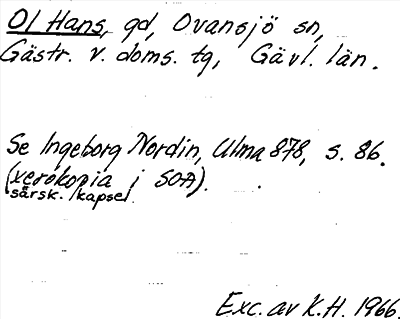 Ol Hans, gd, Ovansjö sn,
Gästr. v. doms. tg, Gävl. län.
Se Ingeborg Nordin, Ulma 878, s. 86.
(xerokopia i SOA).
särsk. kapsel.
Exc. av K.H. 1966.